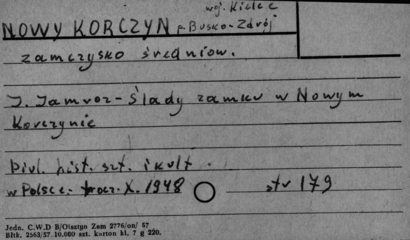 woj. Kielce
NOWY KORCZYN p. Busko-Zdrój
zamczysko średniow.
J. Jamroz - Ślady zamku w Nowym
Korczynie
Biul. hist. szt. i kult.
w Polsce. rocz. X. 1948 str 179
Jedn. C.W.D B/Olsztyn Zam 2776/on/ 57
Bltk. 2563/57. 10.000 szt. karton kl. 7 g 220.